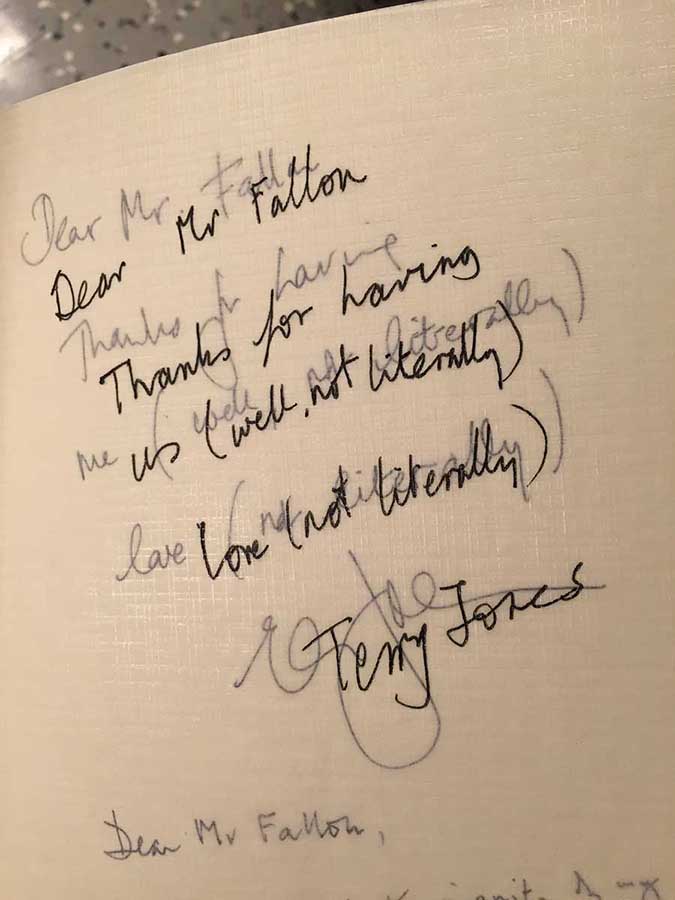 Dear Mr Fallon
Dear Mr Fallon
Thanks for having
Thanks for having
me (well, not litrerally)
us (well, not literally)
love (not literally)
Love (not literally)
Terry Jones
Dear Mr Fallon,